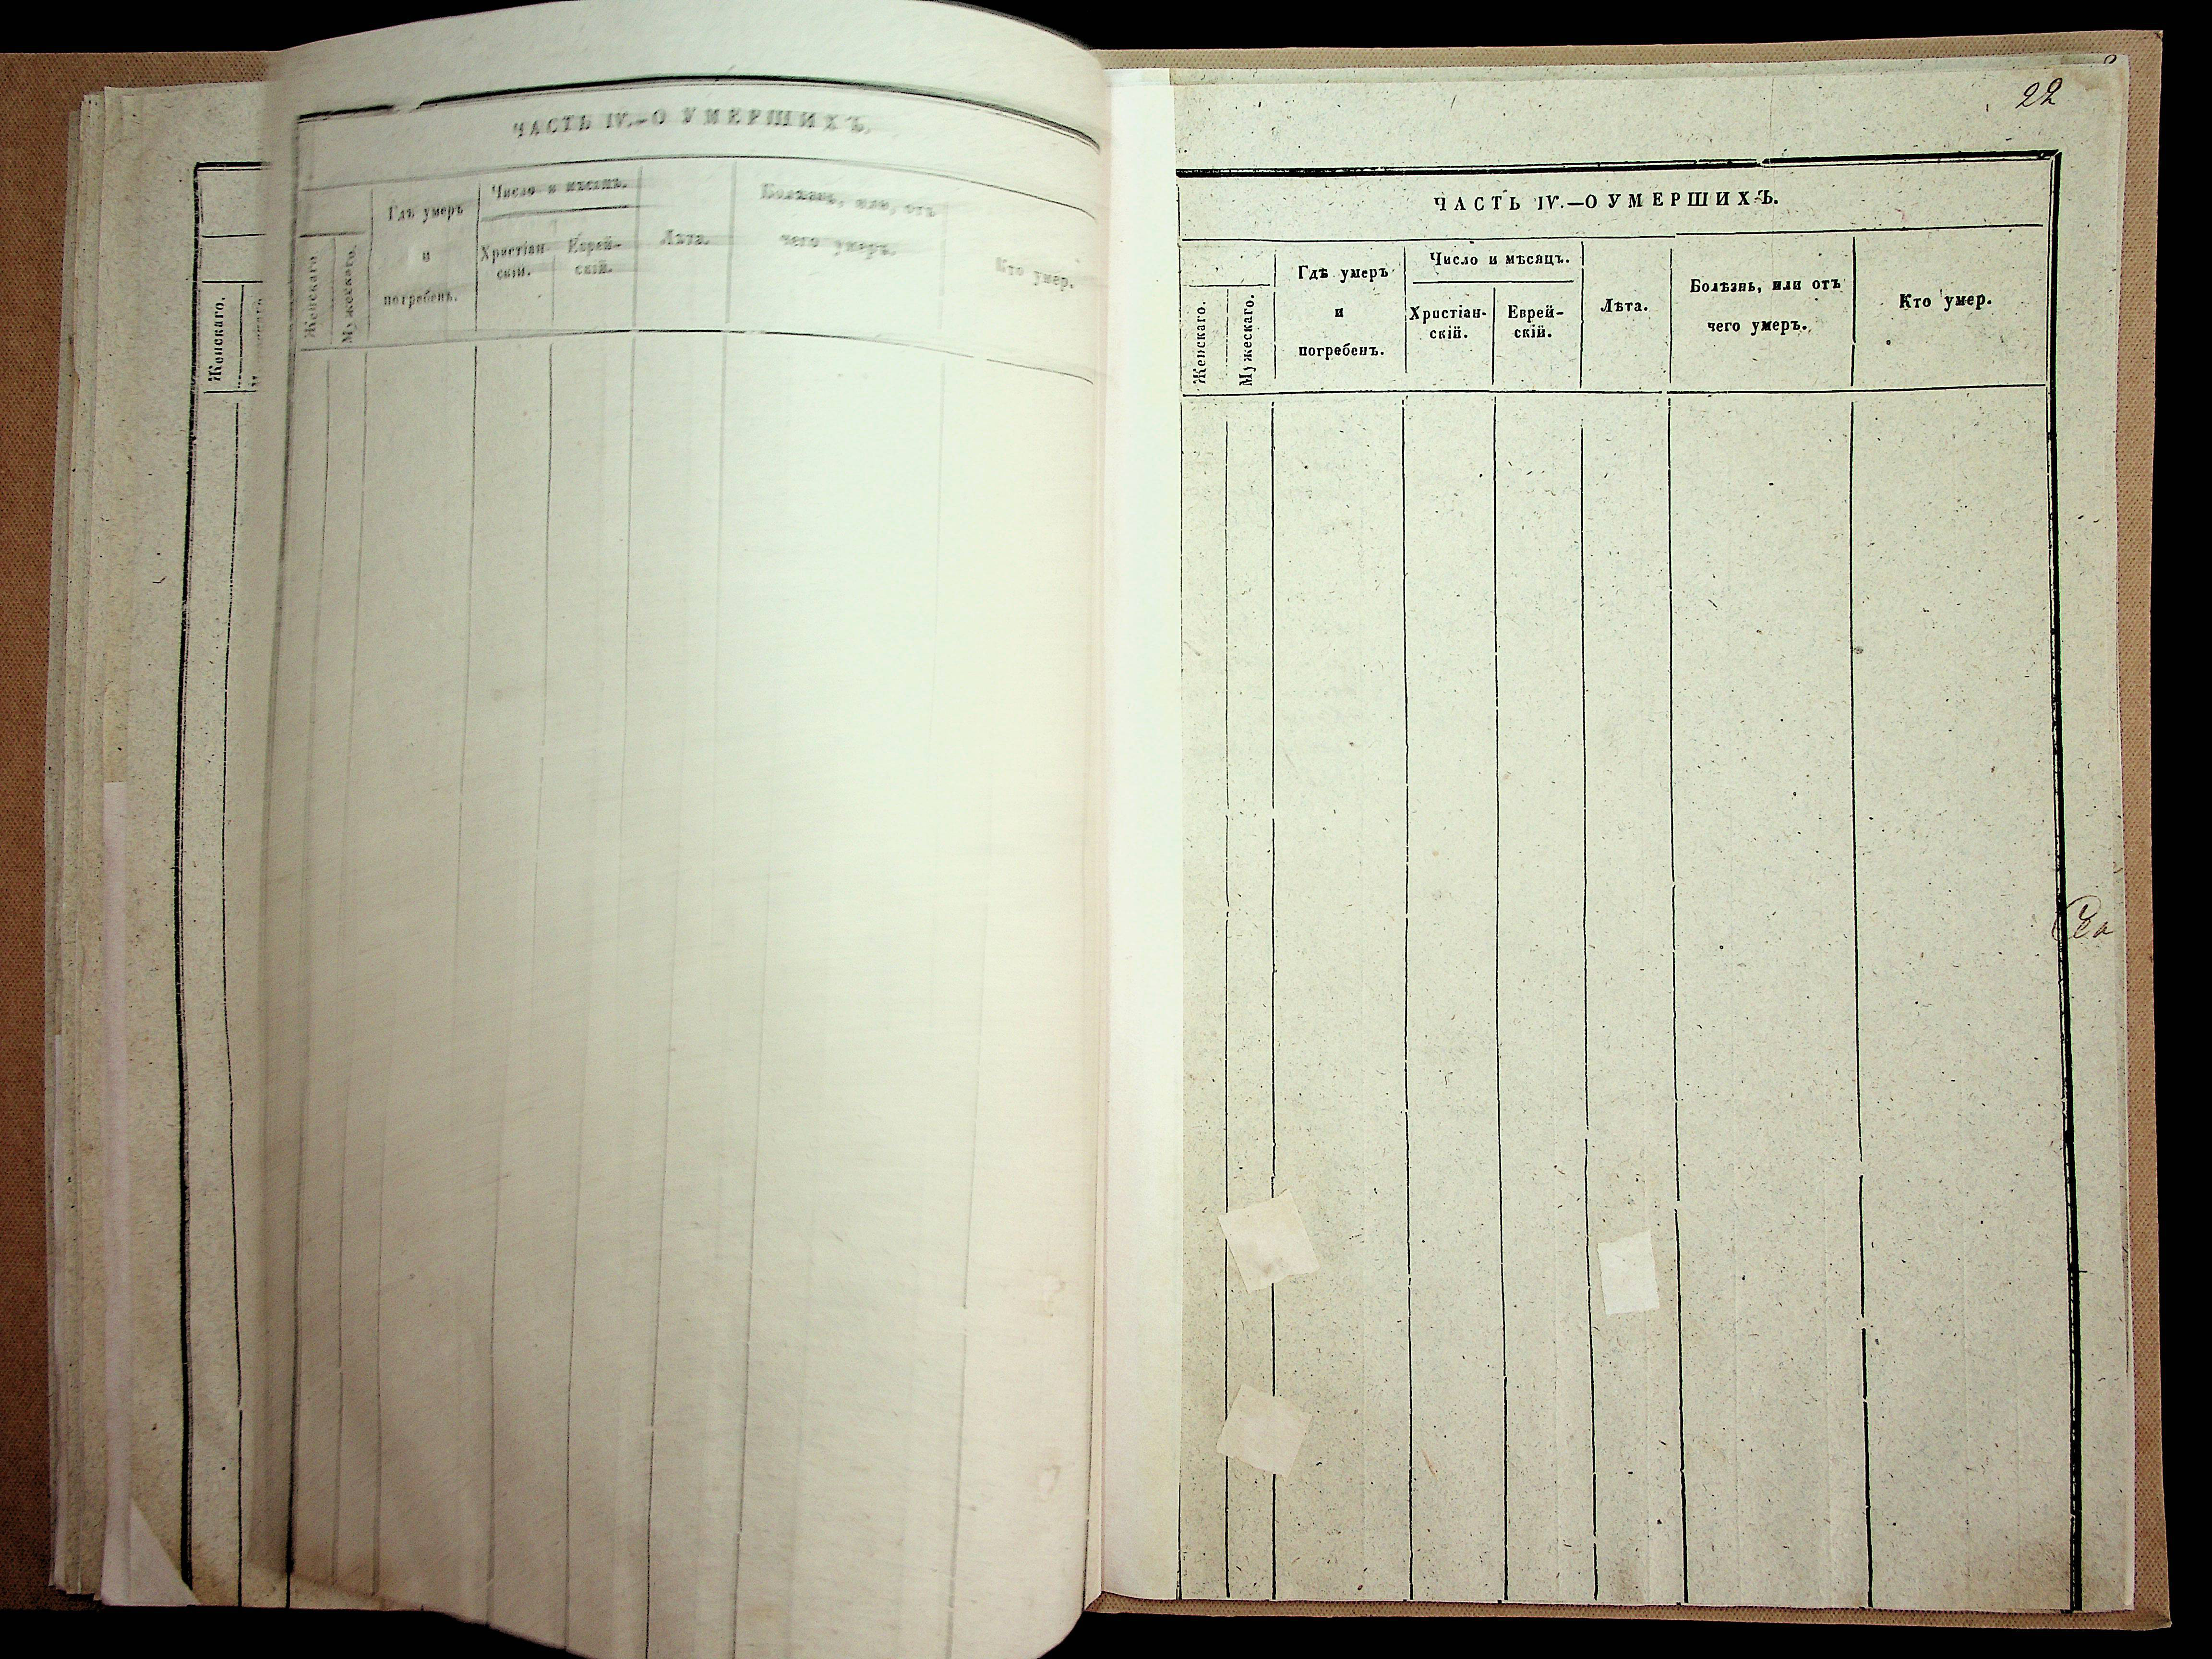 ЧАСТЬ IV.—О УМЕРШИХЪ.
Женскаго.
Женскаго.
Мужескаго.
Гдѣ умеръ
и
погребенъ.
Число и мѣсяцъ.
Христіан-
скій.
Еврей-
скій.
Лѣта.
Болѣзнь, или, отъ
чего умеръ.
Кто умер.
22
ЧАСТЬ IV.—О УМЕРШИХЪ.
Женскаго.
Мужескаго.
Гдѣ умеръ
и
погребенъ.
Число и мѣсяцъ.
Христіан-
скій.
Еврей-
скій.
Лѣта.
Болѣзнь, или отъ
чего умеръ.
Кто умер.